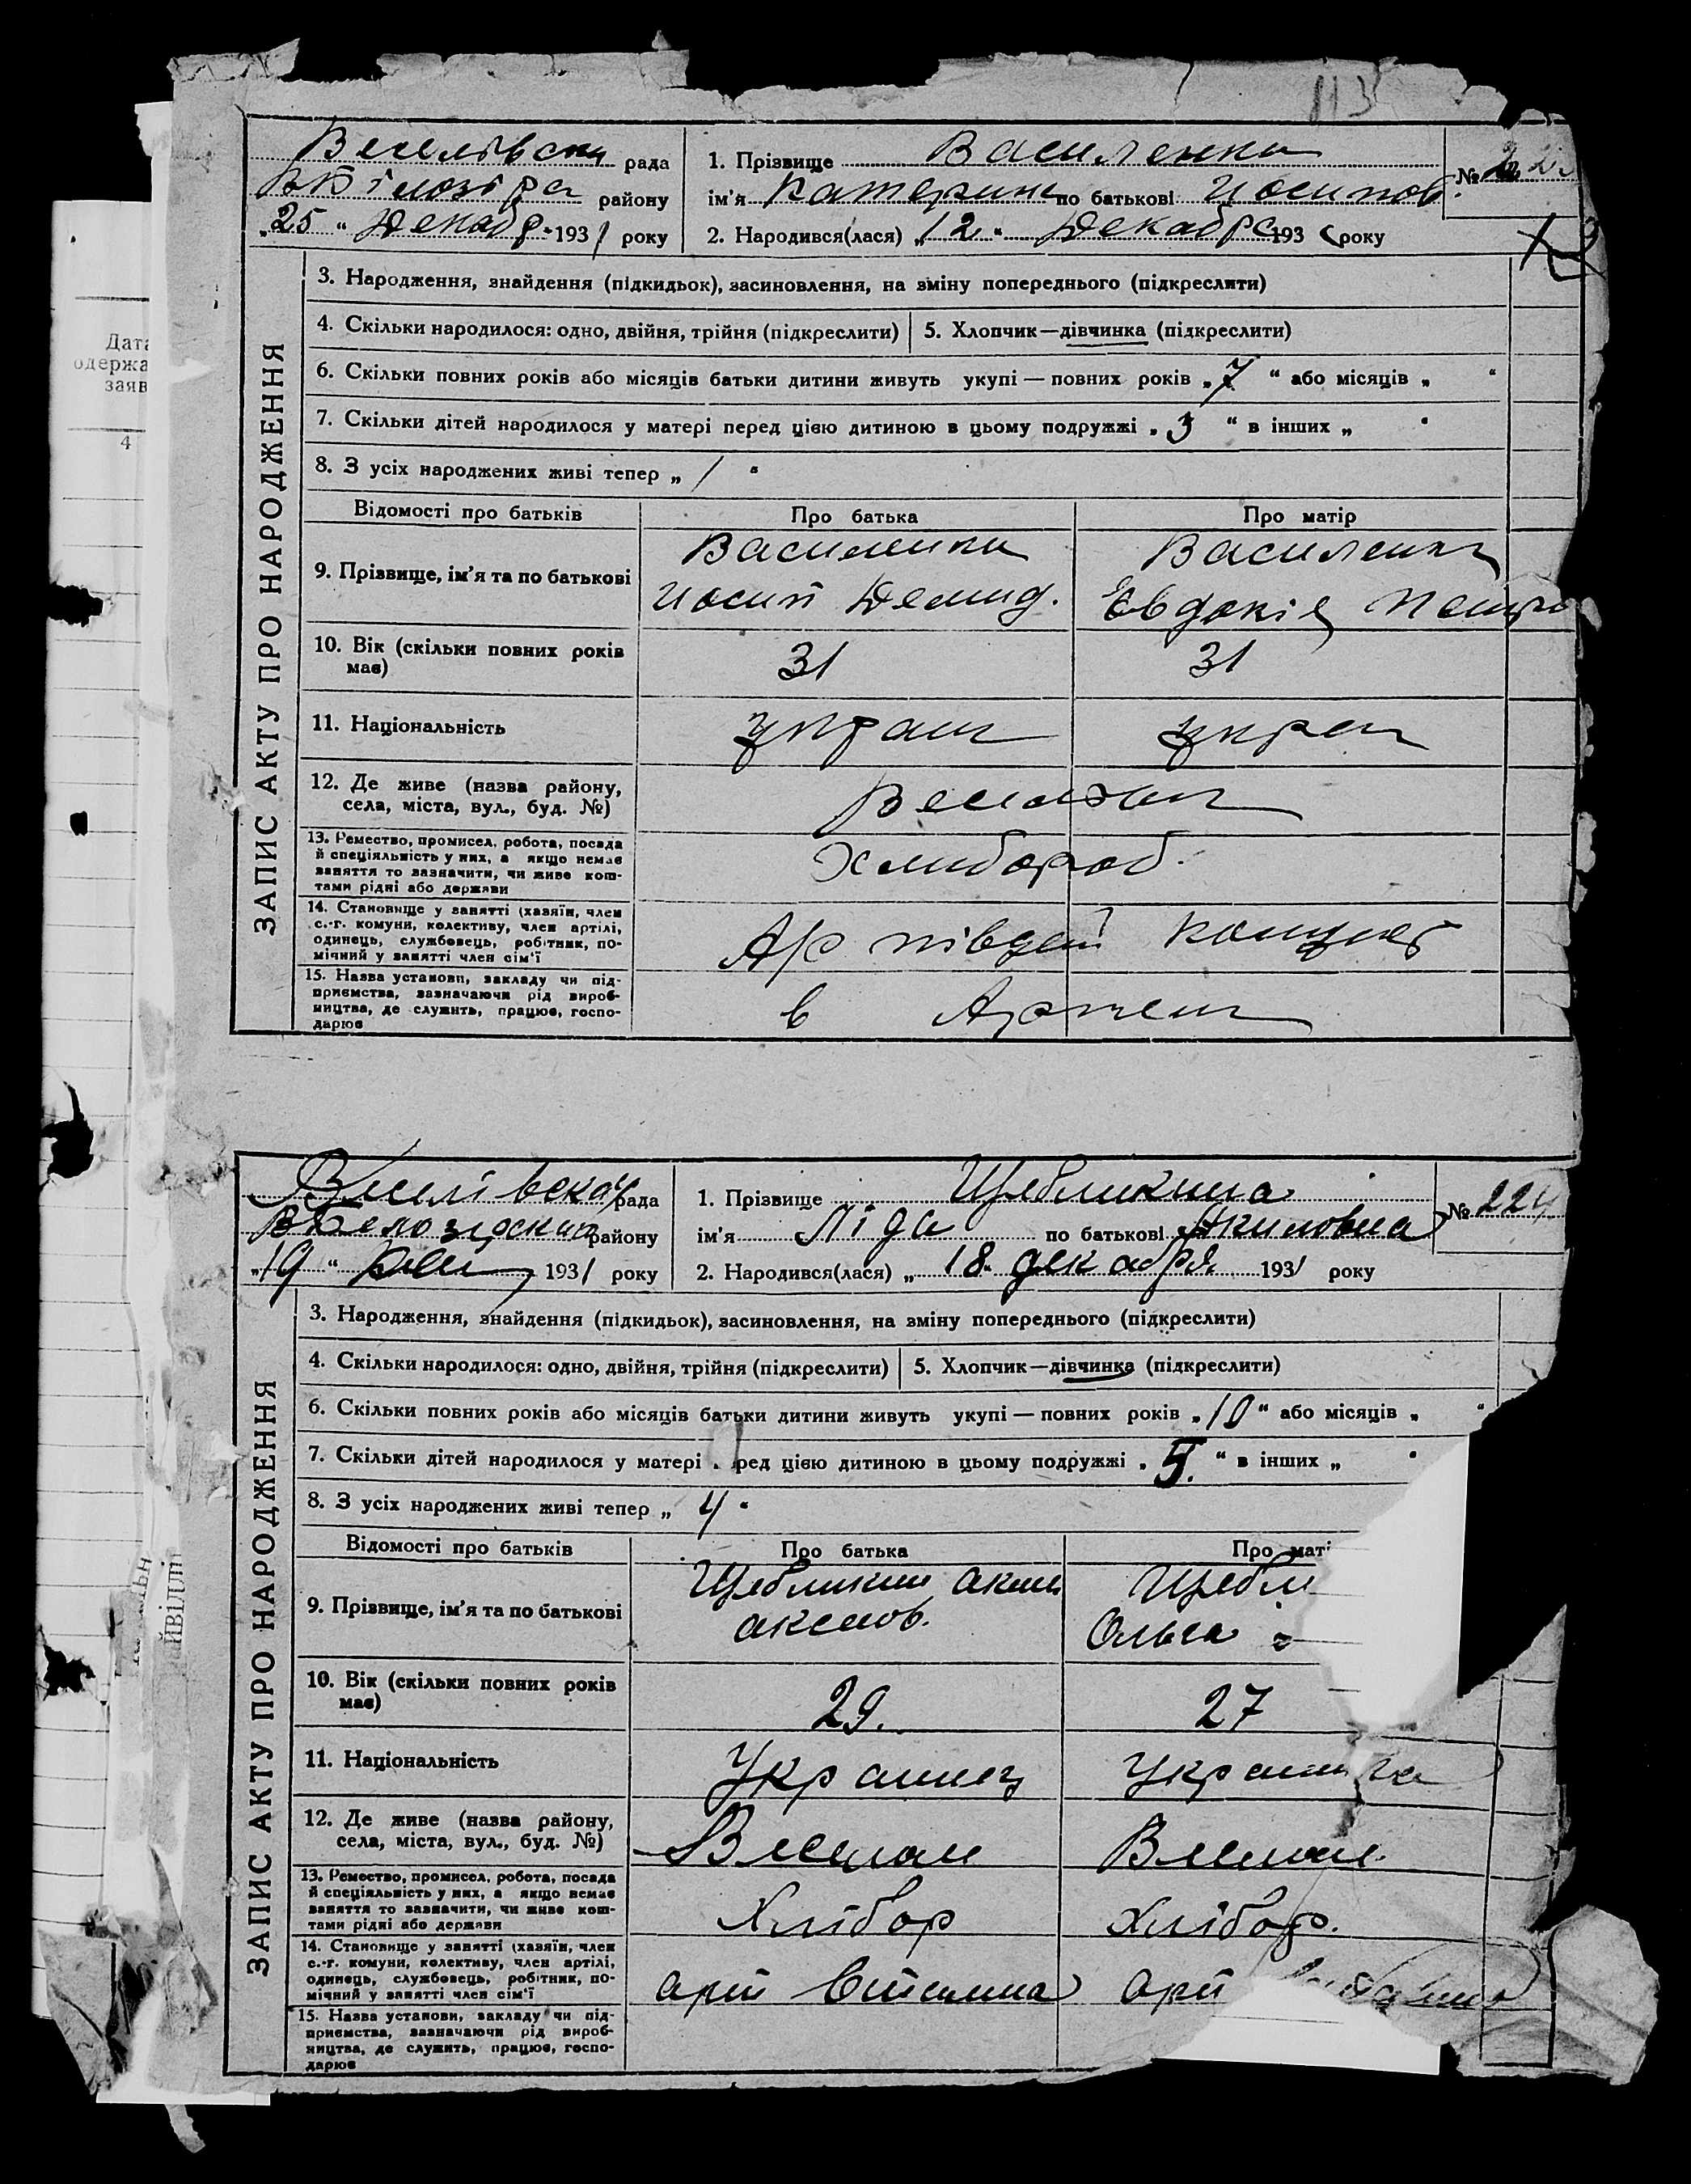 113
Дата
одержа
заяв
4
Веселівска рада
району
„25“ Декабр 1931 року
1. Прізвище Василенко
ім'я Катерина по батькові Иосипов.
2. Народився(лася) „12“ Декабря 193 року
№ 22
ЗАПИС АКТУ ПРО НАРОДЖЕННЯ
3. Народження, знайдення (підкидьок), засиновлення, на зміну попереднього (підкреслити)
4. Скільки народилося: одно, двійня, трійня (підкреслити)
5. Хлопчик—дівчинка (підкреслити)
6. Скільки повних років або місяців батьки дитини живуть укупі — повних років „7“ або місяців „ “
7. Скільки дітей народилося у матері перед цією дитиною в цьому подружжі „3“ в інших „ “
8. З усіх народжених живі тепер „1“
Відомості про батьків
Про батька
Про матір
9. Прізвище, ім'я та по батькові
Василенко
Иосип Демид.
Василенко
Євдокія Петро
10. Вік (скільки повних років
має)
31
31
11. Національність
украин
укра
12. Де живе (назва району,
села, міста, вул., буд. №)
13. Ремество, промисел, робота, посада
й спеціяльність у них, а якщо немає
заняття то зазначити, чи живе кош-
тами рідні або держави
Хлибороб.
14. Становище у занятті (хазяїн, член
с.-г. комуни, колективу, член артілі,
одинець, службовець, робітник, по-
мічний у занятті член сім'ї
15. Назва установи, закладу чи під-
приємства, зазначаючи рід вироб-
ництва, де служить, працює, госпо-
дарює
в Артели
рада
району
„19“ 1931 року
1. Прізвище Щебликина
ім'я Ліда по батькові Акимовна
2. Народився(лася) „18“ декабря 1931 року
№ 224
ЗАПИС АКТУ ПРО НАРОДЖЕННЯ
3. Народження, знайдення (підкидьок), засиновлення, на зміну попереднього (підкреслити)
4. Скільки народилося: одно, двійня, трійня (підкреслити)
5. Хлопчик—дівчинка (підкреслити)
6. Скільки повних років або місяців батьки дитини живуть укупі — повних років „10“ або місяців „ “
7. Скільки дітей народилося у матері ред цією дитиною в цьому подружжі „5.“ в інших „ “
8. З усіх народжених живі тепер „4“
Відомості про батьків
Про батька
Про маті
9. Прізвище, ім'я та по батькові
Щебликин Аким
Щебли
Ольга
10. Вік (скільки повних років
має)
29.
27
11. Національність
Украинец
Украинка
12. Де живе (назва району,
села, міста, вул., буд. №)
13. Ремество, промисел, робота, посада
й спеціяльність у них, а якщо немає
заняття то зазначити, чи живе кош-
тами рідні або держави
Хлібор
Хлібор.
14. Становище у занятті (хазяїн, член
с.-г. комуни, колективу, член артілі,
одинець, службовець, робітник, по-
мічний у занятті член сім'ї
15. Назва установи, закладу чи під-
приємства, зазначаючи рід вироб-
ництва, де служить, працює, госпо-
дарює